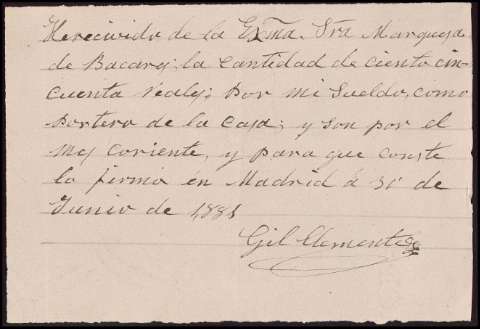 Herecivido de la Exma. Sra Marquesa
de Bacares la Cantidad de ciento cin
cuenta reales; por mi sueldo, como
portero de la Casa; y son por el
mes coriente, y para que conste
lo firmo en Madrid á 31 de
Junio de 1881
Gil Clemente